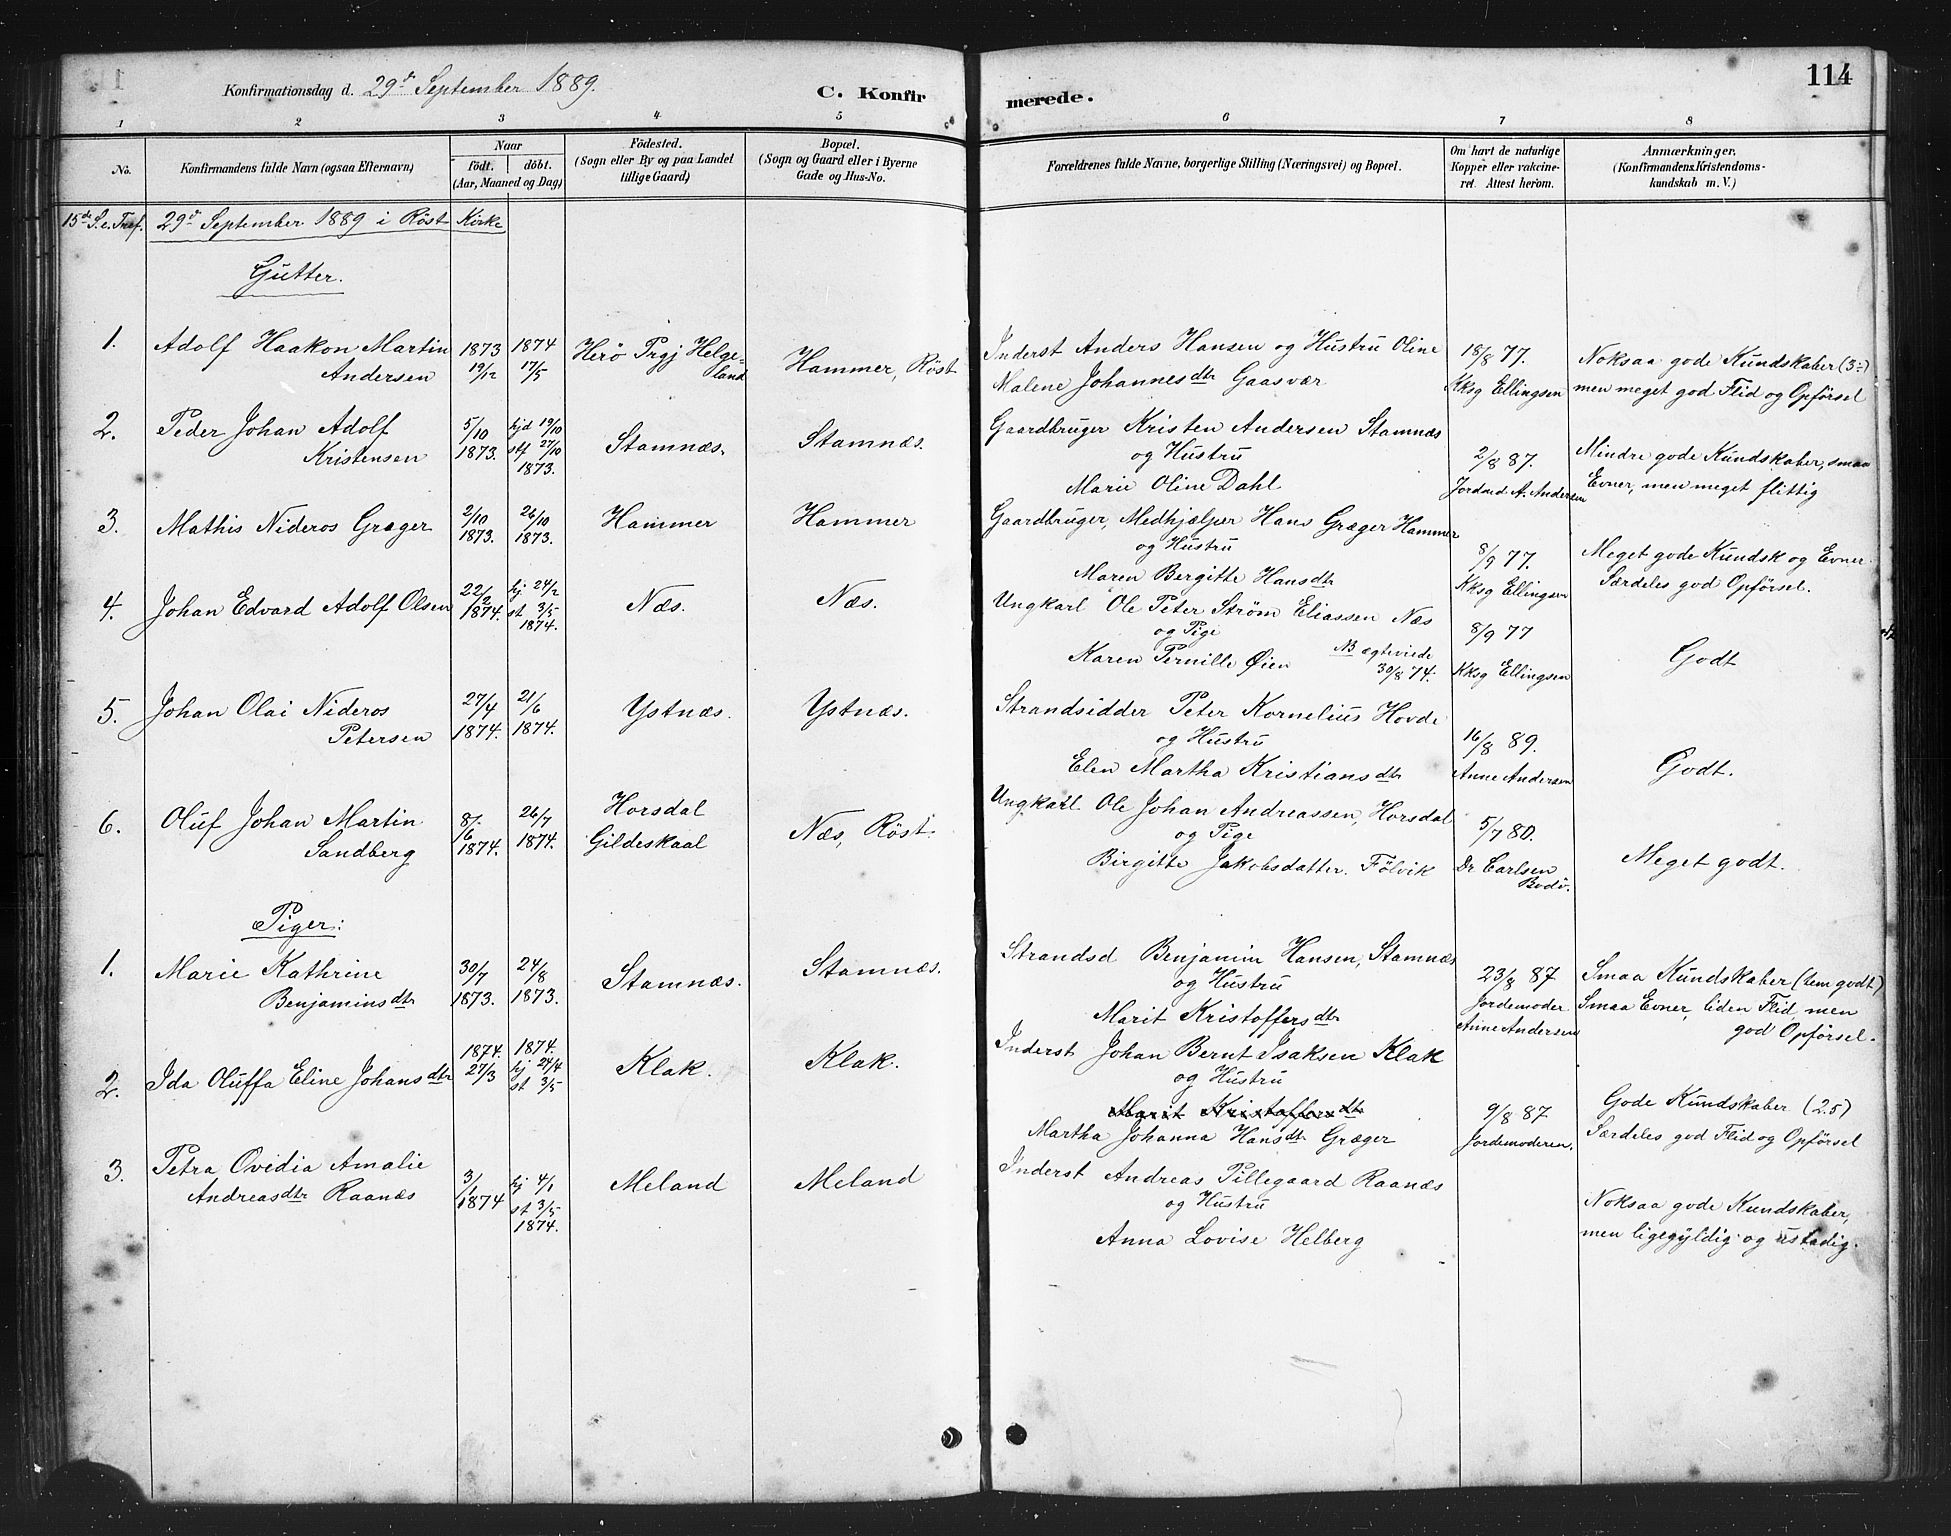 114
Konfirmationsdag d. 29de September 1889.
C. Konfirmerede.
1 2 3 4 5 6 7 8
No.
Konfirmandens fulde Navn (ogsaa Efternavn)
Naar
födt. döbt.
(Aar, Maaned og Dag)
Födested.
(Sogn eller By og paa Landet
tillige Gaard)
Bopæl.
(Sogn og Gaard eller i Byerne
Gade og Hus-No.
Forældrenes fulde Navne, borgerlige Stilling (Næringsvei) og Bopæl.
Om havt de naturlige
Kopper eller vakcine-
ret. Attest herom.
Anmærkninger.
(Konfirmandens Kristendoms-
kundskab m. V.)
15de S. e. Tref. 29de September 1889 i Röst Kirke
Gutter.
1. Adolf Haakon Martin
Andersen
1873
19/12
1874
17/5
Herö Prgj Helge-
land
Hammer, Röst
Inderst Anders Hansen og Hustru Oline
Malene Johannesdtr Gaasvær
18/8 77.
Kksg Ellingsen
Noksaa gode Kundskaber (3-)
men meget god Flid og Opförsel
2. Peder Johan Adolf
Kristensen
5/10
1873.
hjd 19/10
stf 27/10
1873.
Stamnæs.
Stamnæs.
Gaardbruger Kristen Andersen Stamnæs
og Hustru
Marie Oline Dahl
2/8 87.
Jordmd A. Andersen
Mindre gode Kundskaber, smaa
Evner, men meget flittig
3. Mathis Nideros Græger
2/10
1873.
26/10
1873.
Hammer
Hammer
Gaardbruger, Medhjælper Hans Græger Hammer
og Hustru
Maren Bergitte Hansdtr
8/9 77.
Kksg Ellingsen
Meget gode Kundsk og Evner
Særdeles god Opförsel.
4. Johan Edvard Adolf Olsen
22/2
1874.
hj 24/2
st 3/5
1874.
Næs.
Næs.
Ungkarl Ole Peter Ström Eliassen Næs
og Pige
Karen Pernille Øien NB ægteviede
30/8 74.
8/9 77
Kksg Ellingsen
Godt
5. Johan Olai Nideros
Petersen
27/4
1874.
21/6
1874.
Ystnæs.
Ystnæs.
Strandsidder Peter Kornelius Hovde
og Hustru
Elen Martha Kristiansdtr
16/8 89.
Anne Andersen
Godt.
6. Oluf Johan Martin
Sandberg
8/6
1874.
26/7
1874.
Horsdal
Gildeskaal
Næs, Röst
Ungkarl Ole Johan Andreassen, Horsdal
og Pige
Birgitte Jakobsdatter. Fölvik
5/7 80.
Dr Carlsen
Bodö.
Meget godt.
Piger:
1. Marie Kathrine
Benjaminsdtr
30/7
1873.
24/8
1873.
Stamnæs.
Stamnæs.
Strandsd Benjamin Hansen, Stamnæs
og Hustru
Marit Kristoffersdtr
23/8 87
Jordemoder
Anne Andersen
Smaa Kundskaber (tem godt)
Smaa Evner, liden Flid, men
god Opförsel.
2. Ida Oluffa Eline Johansdtr
1874.
27/3
1874.
hj 24/4
st 3/5
Klak.
Klak.
Inderst Johan Bernt Isaksen Klak
og Hustru
Marit Kristoffersdtr
Martha Johanna Hansdtr Græger
9/8 87
Jordemoderen.
Gode Kundskaber (2.5)
Særdeles god Flid og Opförsel
3. Petra Ovidia Amalie
Andreasdtr Raanæs
3/1
1874
hj 4/1
st 3/5
1874.
Meland
Meland
Inderst Andreas Pillegaard Raanæs
og Hustru
Anna Lovise Helberg
Noksaa gode Kundskaber,
men ligegyldig og ustadig.